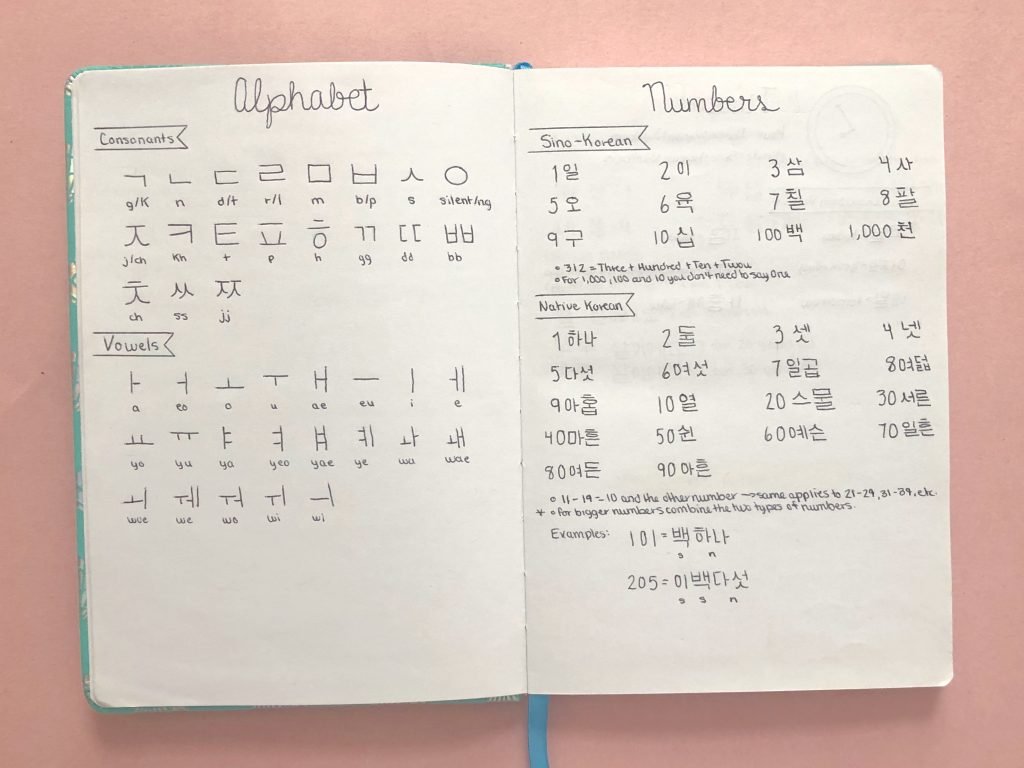 Alphabet
Consonants
ㄱ ㄴ ㄷ ㄹ ㅁ ㅂ ㅅ ㅇ
g/k n d/t r/l m b/p s silent/ng
ㅈ ㅋ ㅌ ㅍ ㅎ ㄲ ㄸ ㅃ
j/ch kh t p h gg dd bb
ㅊ ㅆ ㅉ
ch ss jj
Vowels
ㅏ ㅓ ㅗ ㅜ ㅐ ㅡ ㅣ ㅔ
a eo o u ae eu i e
ㅛ ㅠ ㅑ ㅕ ㅒ ㅖ ㅘ ㅙ
yo yu ya yeo yae ye wa wae
ㅚ ㅞ ㅝ ㅟ ㅢ
wue we wo wi wi
Numbers
Sino-Korean
1 일 2 이 3 삼 4 사
5 오 6 육 7 칠 8 팔
9 구 10 십 100 백 1,000 천
• 312 = Three + Hundred + Ten + Twou
• For 1,000, 100 and 10 you don't need to say One
Native Korean
1 하나 2 둘 3 셋 4 넷
5 다섯 6 여섯 7 일곱 8 여덟
9 아홉 10 열 20 스물 30 서른
40 마흔 50 쉰 60 예슨 70 일흔
80 여든 90 아흔
• 11-19 = 10 and the other number → same applies to 21-29, 31-39, etc.
* • for bigger numbers combine the two types of numbers.
Examples: 101 = 백하나
s n
205 = 이백다섯
s s n